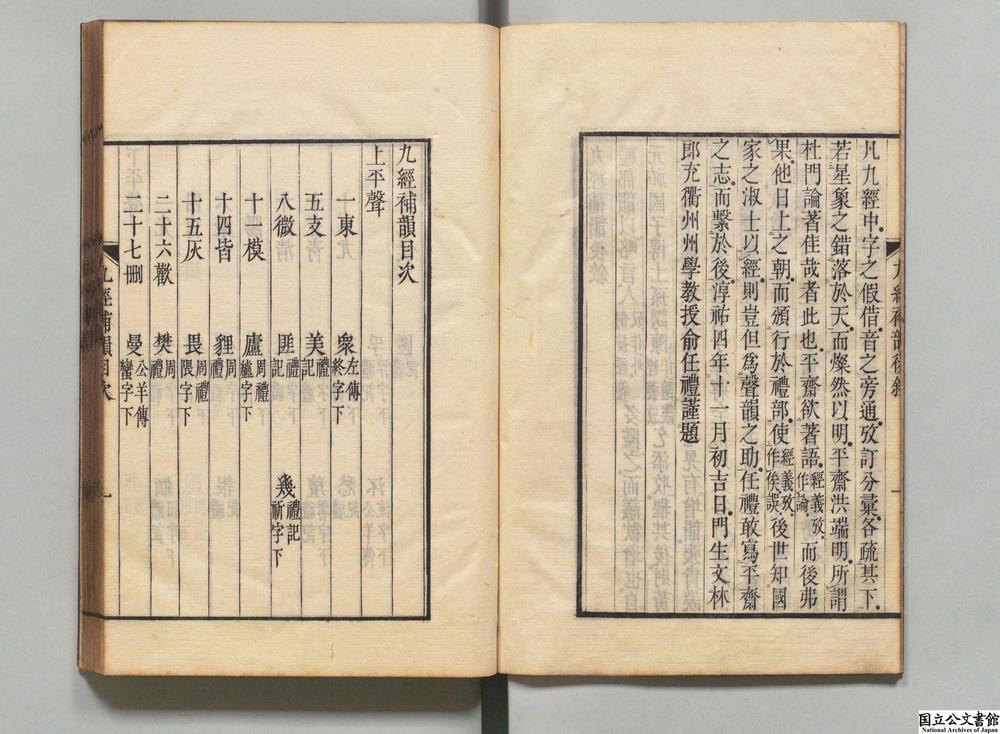 凡九經中字之假借音之旁通攷訂分彙各疏其下
若星象之錯落於天而燦然以明平齋洪端明所謂
杜門論著佳哉者此也平齋欲著語經義攷作論而後弗
果他日上之朝而頒行於禮部使經義攷作俟誤後世知國
家之淑士以經則豈但爲聲韻之助任禮敢寫平齋
之志而繫於後淳祐四年十一月初吉日門生文林
郎充衢州州學教授俞任禮謹題
九經補韻後敘
一
九經補韻目次
上平聲
一東 衆左傳終字下
五支 美禮記
八微 匪禮記 幾禮記祈字下
十模 廬周禮纑字下
十四皆 貍周禮
十五灰 畏周禮隈字下
二十六歡 樊周禮
二十七刪 曼公羊傳蠻字下
九經補韻目次
一
国立公文書館
National Archives of Japan